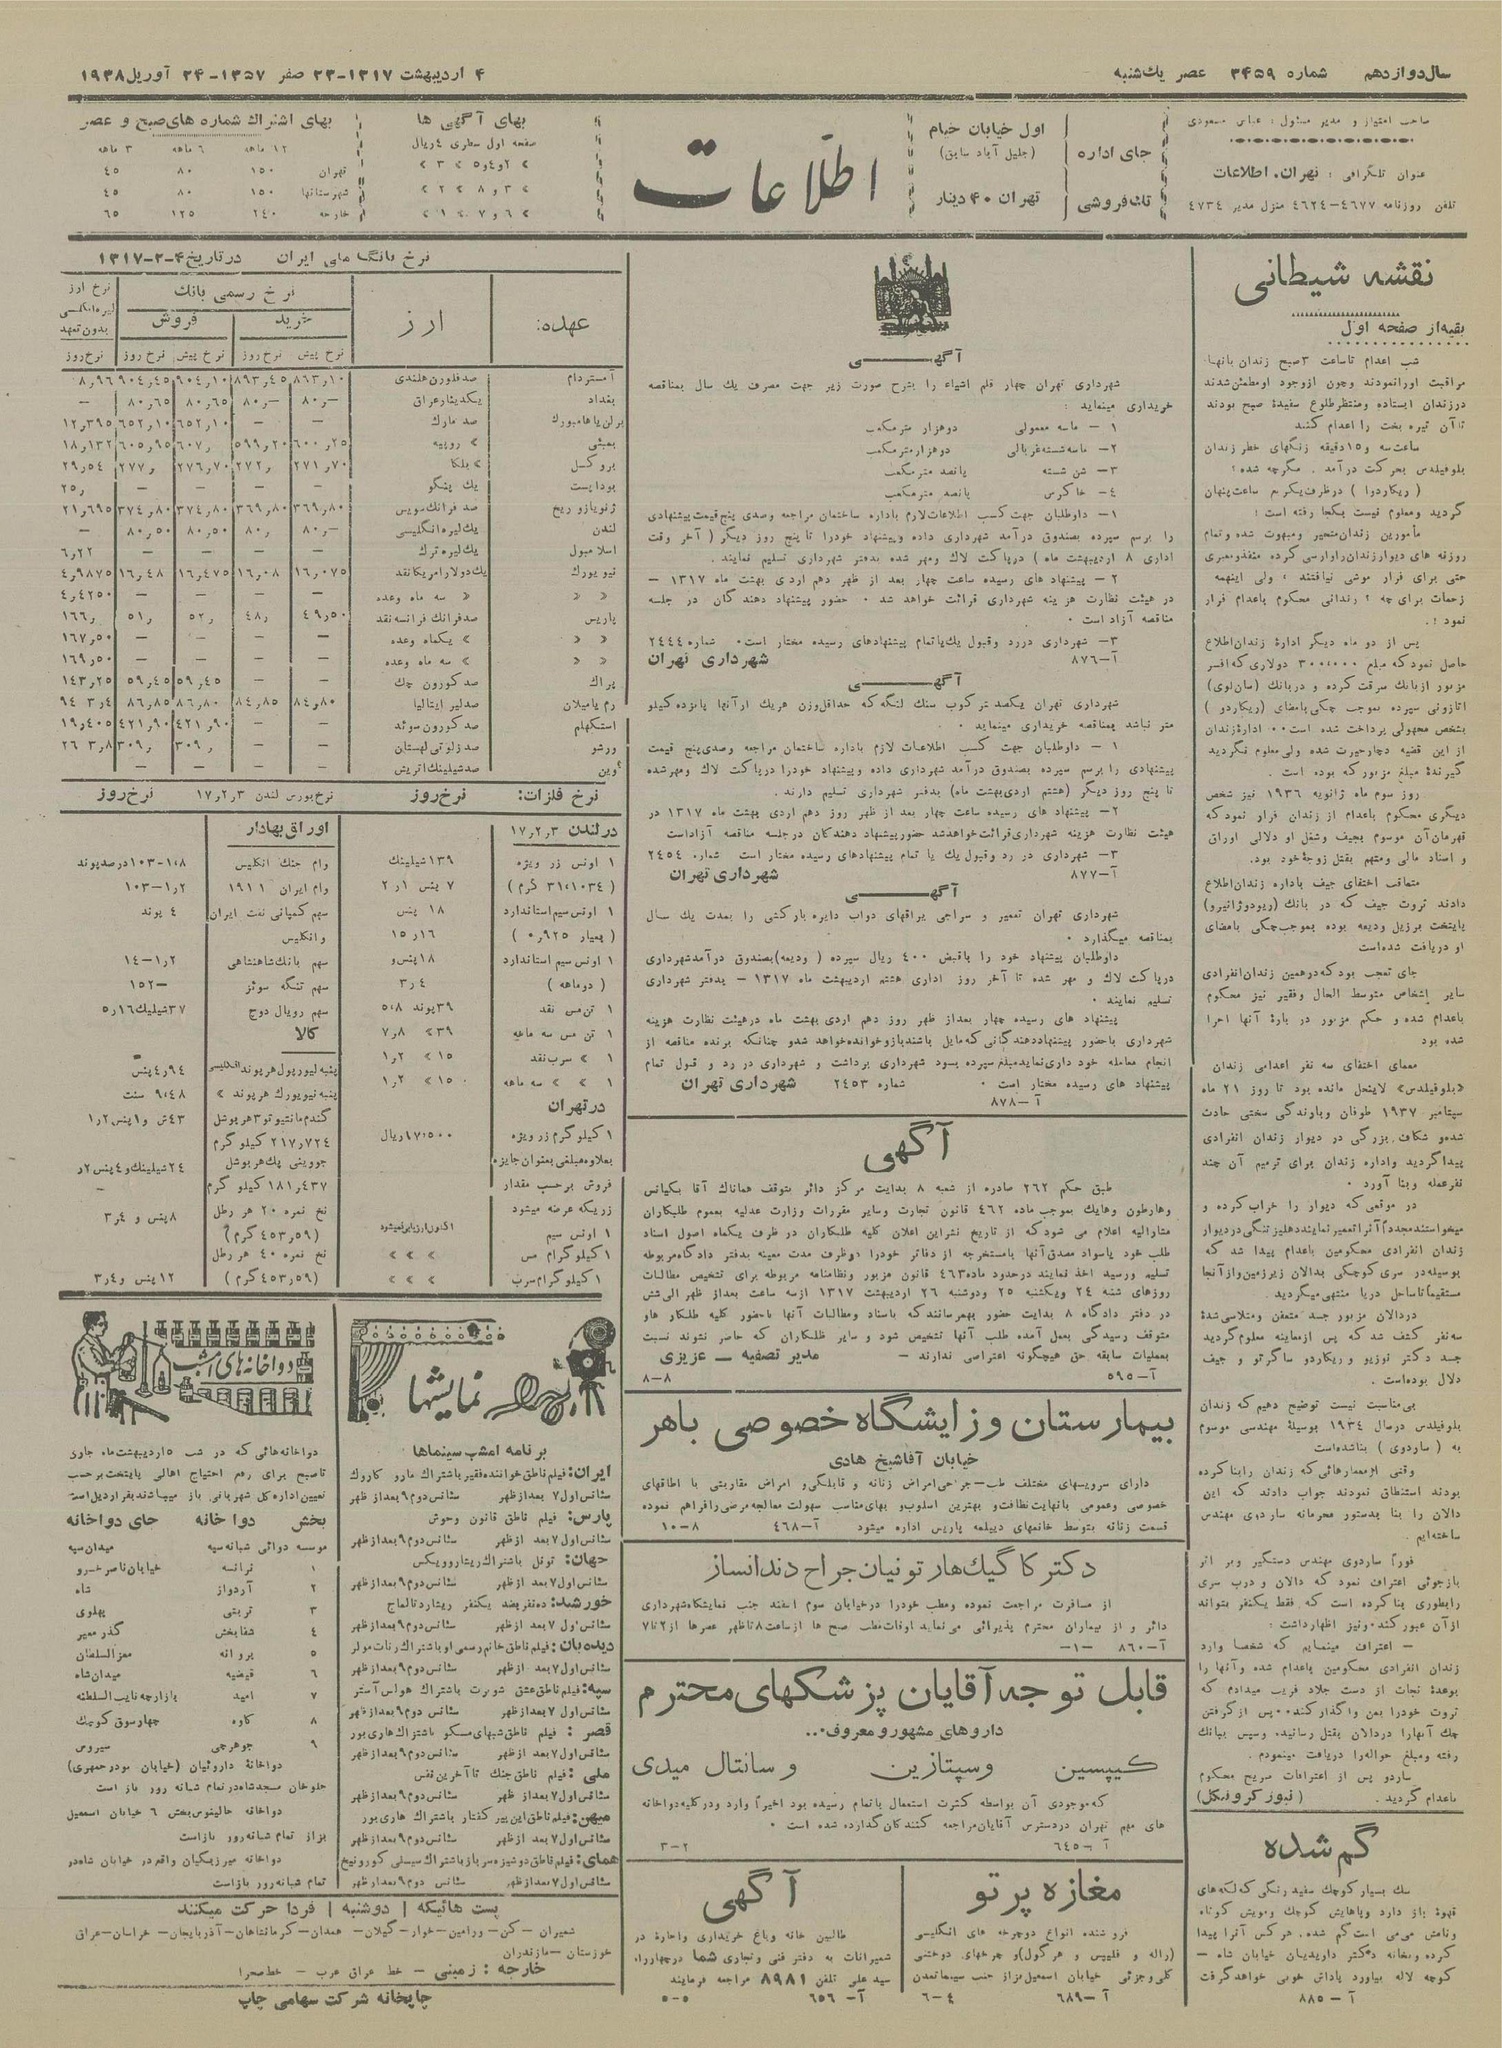 سال دوازدهم شماره ۳۴۵۹ عصر یك شنبه
۴ اردیبهشت ۱۳۱۷-۲۳ صفر ۱۳۵۷- ۲۴ آوریل ۱۹۳۸
صاحب امتیاز و مدیر مسئول: عباس مسعودی
عنوان تلگرافی: تهران، اطلاعات
تلفن روزنامه ۴۶۷۷-۴۶۲۴ منزل مدیر ۴۷۳۴
جای اداره
اول خیابان خیام
(جلیل آباد سابق)
تك فروشی
تهران ۴۰ دینار
اطلاعات
بهای آگهی ها
صفحه اول سطری ۴ ریال
بهای اشتراك شماره های صبح و عصر
۱۲ ماهه ۶ ماهه ۳ ماهه
تهران ۱۵۰ ۸۰ ۴۵
شهرستانها ۱۵۰ ۸۰ ۴۵
خارجه ۲۴۰ ۱۲۵ ۶۵
نقشه شیطانی
بقیه از صفحه اول
شب اعدام تا ساعت ۳ صبح زندان بانها
مراقبت او را نمودند و چون از وجود او مطمئن شدند
در زندان ایستاده و منتظر طلوع سفیدۀ صبح بودند
تا آن تیره بخت را اعدام کنند
ساعت سه و ۱۵ دقیقه زنگهای خطر زندان
بلوفیلدس بحرکت درآمد. مگر چه شده؟
(ریکاردرا) در ظرف یکربع ساعت پنهان
گردید و معلوم نیست بکجا رفته است؛
مأمورین زندان متحیر و مبهوت شده و تمام
روزنه های دیوار زندان را وارسی کرده منفذ و معبری
حتی برای فرار موشی نیافتند؛ ولی اینهمه
زحمات برای چه؟ زندانی محکوم باعدام فرار
نمود!
پس از دو ماه دیگر ادارۀ زندان اطلاع
حاصل نمود که مبلغ ۳۰۰،۰۰۰ دولاری که افسر
مزبور از بانك سرقت کرده و در بانك (سان لوی)
اتازونی سپرده بموجب چکی بامضای (ریکاردو)
بشخص مجهولی پرداخت شده است.. ادارۀ زندان
از این قضیه دچار حیرت شده ولی معلوم نگردید
گیرندۀ مبلغ مزبور که بوده است.
روز سوم ماه ژانویه ۱۹۳۶ نیز شخص
دیگری محکوم باعدام از زندان فرار نمود که
قهرمان آن موسوم بجیف وشغل او دلالی اوراق
و اسناد مالی و متهم بقتل زوجۀ خود بود.
متعاقب اختفای جیف باداره زندان اطلاع
دادند ثروت جیف که در بانك (ریودوژانیرو)
پایتخت برزیل ودیعه بوده بموجب چکی بامضای
او دریافت شده است
جای تعجب بود که در همین زندان انفرادی
سایر اشخاص متوسط الحال و فقیر نیز محکوم
باعدام شده و حکم مزبور در بارۀ آنها اجرا
شده بود
معمای اختفای سه نفر اعدامی زندان
«بلوفیلدس» لاینحل مانده بود تا روز ۲۱ ماه
سپتامبر ۱۹۳۷ طوفان و بارندگی سختی حادث
شده و شکاف بزرگی در دیوار زندان انفرادی
پیدا گردید و اداره زندان برای ترمیم آن چند
نفر عمله و بنا آورد.
در موقعی که دیوار را خراب کرده و
میخواستند مجدداً آنرا تعمیر نمایند دهلیز تنگی در دیوار
زندان انفرادی محکومین باعدام پیدا شد که
بوسیله در سری کوچکی بدالان زیرزمین و از آنجا
مستقیماً تا ساحل دریا منتهی میگردید.
در دالان مزبور جسد متعفن و متلاشی شدۀ
سه نفر کشف شد که پس از معاینه معلوم گردید
جسد دکتر نوزیو و ریکاردو ساگرتو و جیف
دلال بوده است.
بی مناسبت نیست توضیح دهیم که زندان
بلوفیلدس در سال ۱۹۳۴ بوسیلۀ مهندسی موسوم
به (ساردوی) بنا شده است
وقتی از معمارهائی که زندان را بنا کرده
بودند استنطاق نمودند جواب دادند که این
دالان را بنا بدستور محرمانه ساردوی مهندس
ساخته ایم.
فوراً ساردوی مهندس دستگیر و بر اثر
بازجوئی اعتراف نمود که دالان و درب سری
را بطوری بنا کرده است که فقط یکنفر بتواند
از آن عبور کند و نیز اظهار داشت:
— اعتراف مینمایم که شخصاً وارد
زندان انفرادی محکومین باعدام شده و آنها را
بوعدۀ نجات از دست جلاد فریب میدادم که
ثروت خود را بمن واگذار کنند.. پس از گرفتن
چك آنهارا در دالان بقتل رسانیده. وسپس ببانك
رفته و مبلغ حواله را دریافت مینمودم.
ساردو پس از اعترافات صریح محکوم
باعدام گردید. (نیوز کرونیکل)
گم شده
سك بسیار کوچك سفید رنگی که لکه های
قهوۀ باز دارد و پاهایش کوچك و مویش کوتاه
ونامش می می است گم شده. هر کس آنرا پیدا
کرده و بخانه دکتر داریدیان خیابان شاه —
کوچه لاله بیاورد پاداش خوبی خواهد گرفت
آ — ۸۸۵
آگهــــــــی
شهرداری تهران چهار قلم اشیاء را بشرح صورت زیر جهت مصرف یك سال بمناقصه
خریداری مینماید:
۱ — ماسه معمولی دوهزار مترمکعب
۲— ماسه شسته غربالی دوهزار مترمکعب
۳— شن شسته پانصد مترمکعب
۴— خاکرس پانصد مترمکعب
۱— داوطلبان جهت کسب اطلاعات لازم باداره ساختمان مراجعه وصدی پنج قیمت پیشنهادی
را برسم سپرده بصندوق درآمد شهرداری داده وپیشنهاد خودرا تا پنج روز دیگر (آخر وقت
اداری ۸ اردیبهشت ماه) در پاکت لاك ومهر شده بدفتر شهرداری تسلیم نمایند.
۲ — پیشنهاد های رسیده ساعت چهار بعد از ظهر دهم اردی بهشت ماه ۱۳۱۷ —
در هیئت نظارت هزینه شهرداری قرائت خواهد شد. حضور پیشنهاد دهندگان در جلسه
مناقصه آزاد است.
۳— شهرداری در رد وقبول یك یا تمام پیشنهادهای رسیده مختار است. شماره ۲۴۴۴
آ-۸۷۶ شهرداری تهران
آگهــــــــی
شهرداری تهران یکصد تر کوب سنك لنگه که حداقل وزن هریك از آنها پانزده کیلو
متر نباشد بمناقصه خریداری مینماید.
۱ — داوطلبان جهت کسب اطلاعات لازم باداره ساختمان مراجعه وصدی پنج قیمت
پیشنهادی را برسم سپرده بصندوق درآمد شهرداری داده وپیشنهاد خودرا در پاکت لاك ومهرشده
تا پنج روز دیگر (هشتم اردی بهشت ماه) بدفتر شهرداری تسلیم دارند.
۲— پیشنهاد های رسیده ساعت چهار بعد از ظهر روز دهم اردی بهشت ماه ۱۳۱۷ در
هیئت نظارت هزینه شهرداری قرائت خواهد شد حضور پیشنهاد دهندکان در جلسه مناقصه آزاد است
۳— شهرداری در رد وقبول یك یا تمام پیشنهادهای رسیده مختار است شماره ۲۴۵۴
آ-۸۷۷ شهرداری تهران
آگهــــــــی
شهرداری تهران تعمیر و سراجی یراقهای دواب دایره بارکشی را بمدت یك سال
بمناقصه میگذارد.
داوطلبان پیشنهاد خود را باقبض ۴۰۰ ریال سپرده (ودیعه) بصندوق درآمد شهرداری
در پاکت لاك و مهر شده تا آخر روز اداری هشتم اردیبهشت ماه ۱۳۱۷ — بدفتر شهرداری
تسلیم نمایند.
پیشنهاد های رسیده چهار بعداز ظهر روز دهم اردی بهشت ماه در هیئت نظارت هزینه
شهرداری باحضور پیشنهاددهندگانی که مایل باشند باز و خوانده خواهد شد و چنانکه برنده مناقصه از
انجام معامله خود داری نماید مبلغ سپرده بسود شهرداری برداشت و شهرداری در رد و قبول تمام
پیشنهاد های رسیده مختار است. شماره ۲۴۵۳ شهرداری تهران
آ — ۸۷۸
آگهی
طبق حکم ۲۶۲ صادره از شعبه ۸ بدایت مرکز دائر بتوقف هماناك آقا بکیانس
وهارطون وهایك بموجب ماده ۴۶۲ قانون تجارت وسایر مقررات وزارت عدلیه بعموم طلبکاران
مشارالیه اعلام می شود که از تاریخ نشر این اعلان کلیه طلبکاران در ظرف یکماه اصول اسناد
طلب خود یا سواد مصدق آنها بامستخرجه از دفاتر خودرا در ظرف مدت معینه بدفتر دادگاه مربوطه
تسلیم ورسید اخذ نمایند در حدود ماده ۴۶۳ قانون مزبور ونظامنامه مربوطه برای تشخیص مطالبات
روزهای شنبه ۲۴ ویکشنبه ۲۵ ودوشنبه ۲۶ اردیبهشت ۱۳۱۷ از سه ساعت بعداز ظهر الی شش
در دفتر دادگاه ۸ بدایت حضور بهمرسانند که باسناد ومطالبات آنها باحضور کلیه طلبکار های
متوقف رسیدگی بعمل آمده طلب آنها تشخیص شود و سایر طلبکاران که حاضر نشوند نسبت
بعملیات سابقه حق هیچگونه اعتراضی ندارند — مدیر تصفیه — عزیزی
آ—۵۹۵ ۸—۸
بیمارستان و زایشگاه خصوصی باهر
خیابان آقاشیخ هادی
دارای سرویسهای مختلف طب-جراحی امراض زنانه و قابلگی و امراض مقاربتی با اطاقهای
خصوصی وعمومی با نهایت نظافت و بهترین اسلوب و بهای مناسب سهولت معالجه مرضی را فراهم نموده
قسمت زنانه بتوسط خانمهای دیپلمه پاریس اداره میشود آ—۴۶۸ ۸—۱۰
دکتر کاگیك هارتونیان جراح دندانساز
از مسافرت مراجعت نموده ومطب خودرا در خیابان سوم اسفند جنب نمایشگاه شهرداری
دائر و از بیماران محترم پذیرائی می نماید اوقات مطب صبح ها از ساعت ۸ تا ظهر عصرها از ۲ تا ۷
آ-۸۶۰ —۱—
قابل توجه آقایان پزشکهای محترم
داروهای مشهور و معروف...
کیپسین وسپتازین و سانتال میدی
که موجودی آن بواسطه کثرت استعمال باتمام رسیده بود اخیراً وارد ودر کلیه دواخانه
های مهم تهران در دسترس آقایان مراجعه کنندکان گذارده شده است.
آ —۶۴۵ ۲—۳
مغازه پرتو
فروشنده انواع دوچرخه های انگلیسی
(راله و فلیپس و هرکول) و چرخهای دوختنی
کلی و جزئی خیابان اسمعیل بزاز جنب سینما تمدن
آ —۶۸۹ ۴—۶
آگهی
طالبین خانه وباغ خریداری واجارۀ در
شمیرانات به دفتر فنی وتجاری شما در چهارراه
سید علی تلفن ۸۹۸۱ مراجعه فرمایند
آ— ۶۵۶ ۵—۵
نرخ بانك ملی ایران در تاریخ ۴-۲-۱۳۱۷
عهده: ارز نرخ رسمی بانك نرخ ارز لیره انگلیسی بدون تعهد
خرید فروش
نرخ پیش نرخ روز نرخ پیش نرخ روز نرخ روز
آمستردام صد فلورن هلندی ۸۶۳٫۱۰ ۸۹۳٫۴۵ ۹۰۴٫۱۰ ۹۰۴٫۴۵ ۸٫۹۶
بغداد یکدینار عراق ۸۰٫— ۸۰٫— ۸۰٫۶۵ ۸۰٫۶۵ —
برلن یا هامبورك صد مارك — — ۶۵۲٫۱۰ ۶۵۲٫۱۰ ۱۲٫۳۹۵
بمبئی » روپیه ۶۰۰٫۲۵ ۵۹۹٫۲۰ ۶۰۷٫ ۶۰۵٫۹۵ ۱۸٫۱۳۲
بروکسل » بلکا ۲۷۱٫۷۰ ۲۷۲٫ ۲۷۶٫۷۰ ۲۷۷٫ ۲۹٫۵۴
بوداپست یك پنگو — — — — ۲۵٫
ژنویازوریخ صد فرانك سویس ۳۶۹٫۸۰ ۳۶۹٫۸۰ ۳۷۴٫۸۰ ۳۷۴٫۸۰ ۲۱٫۶۹۵
لندن یك لیره انگلیسی ۸۰٫— ۸۰٫ ۸۰٫۵۰ ۸۰٫۵۰ —
اسلامبول یك لیره ترك — — — — ۶٫۲۲
نیویورك یك دولار امریکا نقد ۱۶٫۰۷۵ ۱۶٫۰۸ ۱۶٫۴۷۵ ۱۶٫۴۸ ۴٫۹۸۷۵
« « « سه ماه وعده — — — — ۴٫۴۲۵۰
پاریس صد فرانك فرانسه نقد ۴۹٫۵۰ ۴۸٫ ۵۲٫ ۵۱٫ ۱۶۶٫
« « » یکماه وعده — — — — ۱۶۷٫۵۰
« « » سه ماه وعده — — — — ۱۶۹٫۵۰
پراك صد کورون چك — — ۵۹٫۴۵ ۵۹٫۴۵ ۱۴۳٫۲۵
رم یا میلان صد لیر ایتالیا ۸۴٫۸۰ ۸۴٫۸۵ ۸۶٫۸۰ ۸۶٫۸۵ ۹۴ ۳٫۴
استکهلم صد کورون سوئد — — ۴۲۱٫۹۰ ۴۲۱٫۹۰ ۱۹٫۴۰۵
ورشو صد زلوتی لهستان — — ۳۰۹٫ ۳۰۹٫ ۲۶ ۳٫۸
وین صد شیلینك اتریش — — — —
نرخ فلزات: نرخ روز
در لندن ۱۷٫۲٫۳
۱ اونس زر ویژه ۱۳۹ شیلینك
(۳۱،۱۰۳۴ گرم) ۷ پنس ۱٫۲
۱ اونس سیم استاندارد ۱۸ پنس
(بعیار ۰٫۹۲۵) ۱۵٫۱۶
۱ اونس سیم استاندارد ۱۸ پنس و
(دوماهه) ۳٫۴
۱ تن مس نقد ۳۹ پوند ۵٫۸
۱ تن مس سه ماهه ۳۹ » ۷٫۸
۱ » سرب نقد ۱۵ » ۱٫۲
۱ » » سه ماهه ۱۵۰ » ۱٫۲
در تهران
۱ کیلو گرم زر ویژه ۶۷٬۵۰۰ ریال
بعلاوه مبلغی بعنوان جایزه
فروش برحسب مقدار
زریکه عرضه میشود
۱ اونس سیم اکنون ارزیابی نمیشود
۱ کیلوگرام مس » » »
۱ کیلوگرام سرب » » »
نرخ بورس لندن ۱۷٫۲٫۳ نرخ روز
اوراق بهادار
وام جنك انگلیس ۱۰۳-۱٫۸ درصد پوند
وام ایران ۱۹۱۱ ۱۰۳-۱٫۲
سهم کمپانی نفت ایران ۴ پوند
و انگلیس
سهم بانك شاهنشاهی ۱۴-۱٫۲
سهم تنگه سوئز ۱۵۲—
سهم رویال دوچ ۳۷ شیلیك ۵٫۱۶
کالا
پنبه لیورپول هر پوند انگلیسی ۴٫۹۴ پنس
پنبه نیویورك هر پوند » ۹٫۴۸ سنت
گندم مانتیوتو ۳ هر بوشل ۴۳ ش و ۱ پنس ۱٫۲
۲۱۷٫۷۲۴ کیلو گرم
جووینی پك هر بوشل ۲۴ شیلینك و ۴ پنس ۲٫
۱۸۱٫۴۳۷ کیلو گرم —
نخ نمره ۲۰ هر رطل ۸ پنس و ۳٫۴
(۴۵۳٫۵۹ گرم)
نخ نمره ۴۰ هر رطل
(۴۵۳٫۵۹ گرم) ۱۲ پنس و ۳٫۴
نمایشها
برنامه امشب سینماها
ایران: فیلم ناطق خواننده فقیر باشتراك مارو کاروك
سئانس اول ۷ بعداز ظهر سئانس دوم ۹ بعداز ظهر
پارس: فیلم ناطق قانون وحوش
سئانس اول ۷ بعد از ظهر سئانس دوم ۹ بعداز ظهر
جهان: تونل باشتراك ریشاردویکس
سئانس اول ۷ بعد از ظهر سئانس دوم ۹ بعداز ظهر
خورشید: ده نفر بضد یکنفر ریشارد تالماج
سئانس اول ۷ بعد از ظهر سئانس دوم ۹ بعداز ظهر
دیده بان: فیلم ناطق خانم رسمی او باشتراك رنات مولر
سئانس اول ۷ بعد از ظهر سئانس دوم ۹ بعداز ظهر
سپه: فیلم ناطق عشق شوبرت باشتراك هواس آستر
سئانس اول ۷ بعد از ظهر سئانس دوم ۹ بعداز ظهر
قصر: فیلم ناطق شبهای مسکو باشتراك هاری بور
سئانس اول ۷ بعد از ظهر سئانس دوم ۹ بعداز ظهر
ملی: فیلم ناطق جنك تا آخرین نفس
سئانس اول ۷ بعد از ظهر سئانس دوم ۹ بعداز ظهر
میهن: فیلم ناطق این پیر کفتار باشتراك هاری بور
سئانس اول ۷ بعد از ظهر سئانس دوم ۹ بعداز ظهر
همای: فیلم ناطق دوشیزه سرباز باشتراك سیسلی کورونیخ
سئانس اول ۷ بعداز ظهر سئانس دوم ۹ بعداز ظهر
دواخانه های امشب
دواخانه هائی که در شب ۵ اردیبهشت ماه جاری
تا صبح برای رفع احتیاج اهالی پایتخت برحسب
تعیین اداره کل شهربانی باز میباشند بقرار ذیل است
بخش دوا خانه جای دواخانه
موسسه دوائی شبانه سپه میدان سپه
۱ فرانسه خیابان ناصر خسرو
۲ آردواز شاه
۳ تربتی پهلوی
۴ شفابخش گذر معیر
۵ پروانه معزالسلطان
۶ فیضیه میدان شاه
۷ امید بازارچه نایب السلطنه
۸ کاوه چهار سوق کوچك
۹ جوهرچی سیروس
دواخانۀ داروئیان (خیابان بوذرجمهری)
جلوخان مسجد شاه در تمام شبانه روز باز است
دواخانه جالینوس بخش ۶ خیابان اسمعیل
بزاز تمام شبانه روز بازاست
دواخانه میرزیکیان واقع در خیابان شاه در
تمام شبانه روز بازاست
پست هائیکه | دوشنبه | فردا حرکت میکنند
شمیران—کن—ورامین—خوار—گیلان— همدان—کرمانشاهان—آذربایجان—خراسان—عراق
خوزستان—مازندران
خارجه: زمینی — خط عراق عرب — خط صحرا
چاپخانه شرکت سهامی چاپ